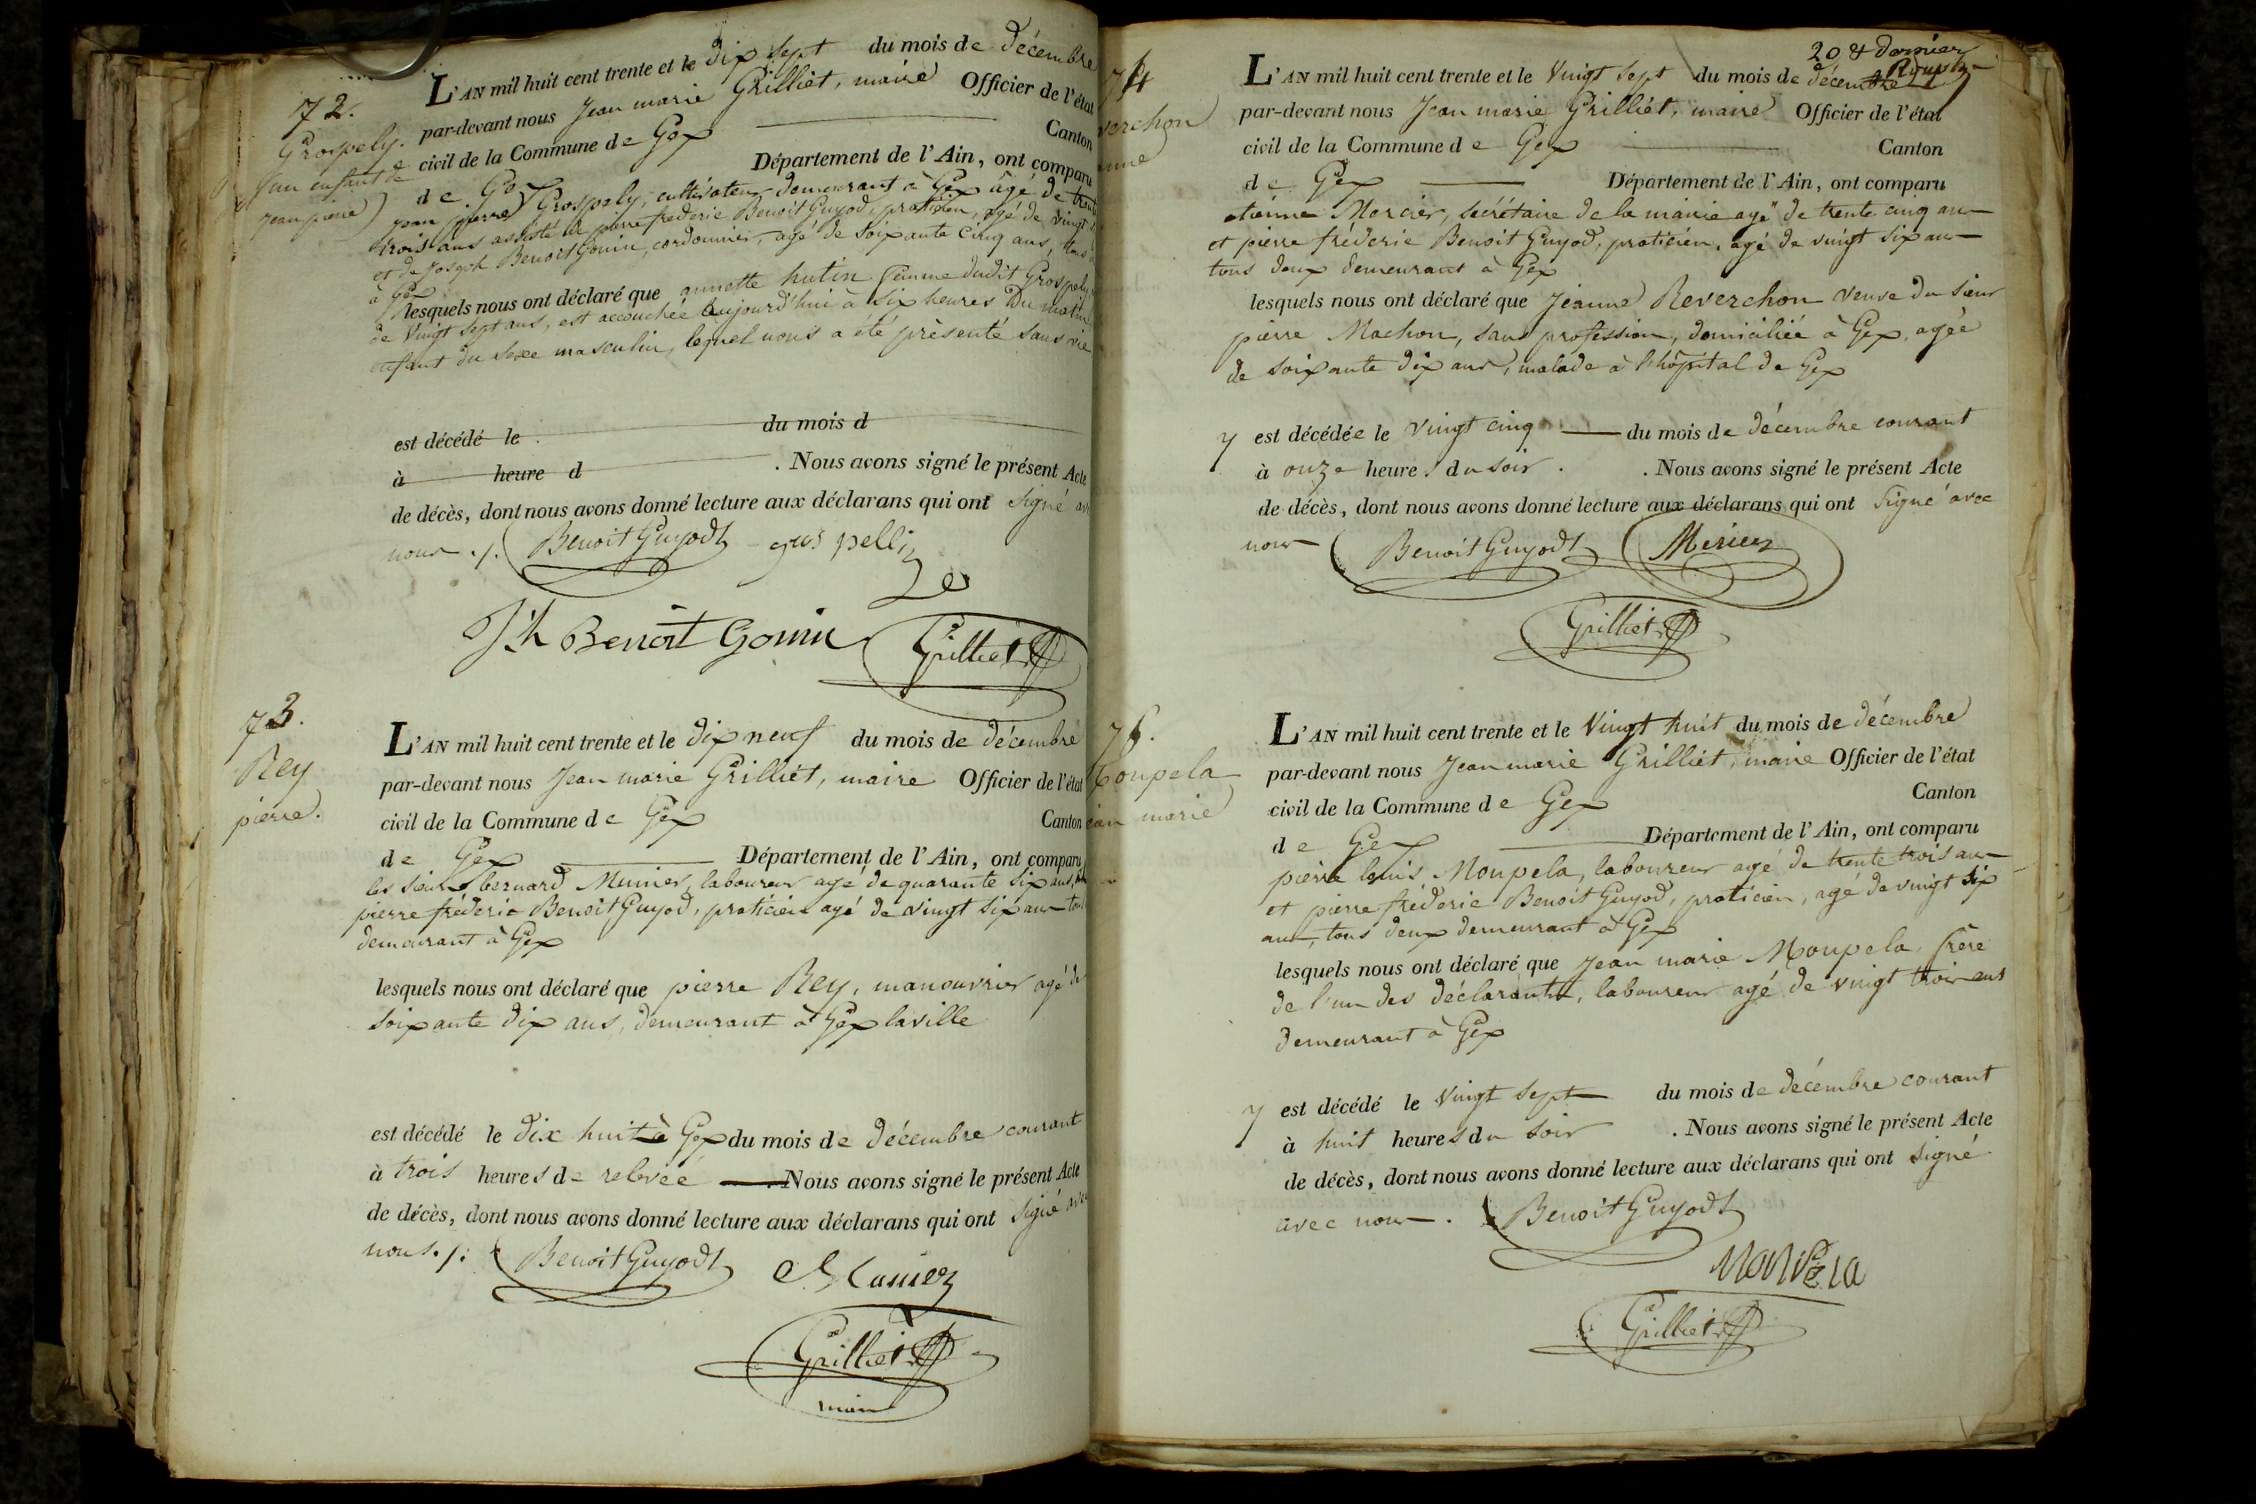 72.
Grospely.
(un enfant de
jean pierre)
L'AN mil huit cent trente et le dix sept du mois de décembre
par-devant nous Jean marie Grilliet, maire Officier de l'état
civil de la Commune de Gex Canton
de Gex Département de l'Ain, ont comparu
jean pierre Grospely, cultivateur demeurant à Gex âgé de trente
trois ans assisté de pierre frederic Benoit Guyod, praticien, agé de vingt
et de Joseph Benoit Gonin, cordonnier, agé de soixante cinq ans, tous
à Gex
lesquels nous ont déclaré que annette hutin femme dudit Grospely
de vingt sept ans, est accouchée aujourd'hui à six heures du matin
enfant du sexe masculin, lequel nous a été présenté sans vie
est décédé le du mois d
à heure d . Nous avons signé le présent Acte
de décès, dont nous avons donné lecture aux déclarans qui ont signé
nous ./. Benoit Guyodt gros pelli
Jh Benoit Gonin Grilliet
73.
Rey
pierre.
L'AN mil huit cent trente et le dix neuf du mois de décembre
par-devant nous Jean marie Grilliet, maire Officier de l'état
civil de la Commune de Gex Canton
de Gex Département de l'Ain, ont comparu
les sieurs bernard Munier, laboureur agé de quarante six ans,
pierre fréderic Benoit Guyod, praticien agé de vingt six ans
demeurant à Gex
lesquels nous ont déclaré que pierre Rey, manouvrier agé de
soixante dix ans, demeurant à Gex la ville
est décédé le dix huit à Gex du mois de décembre courant
à trois heures de relevée Nous avons signé le présent Acte
de décès, dont nous avons donné lecture aux déclarans qui ont signé avec
nous ./. Benoit Guyodt Munier
Grilliet
maire
20 & dernier
74
verchon
L'AN mil huit cent trente et le vingt sept du mois de décembre
par-devant nous Jean marie Grilliét, maire Officier de l'état
civil de la Commune de Gex Canton
de Gex Département de l'Ain, ont comparu
etienne Mercier, secrétaire de la mairie agé de trente cinq ans
et pierre fréderic Benoit Guyod, praticien, agé de vingt six ans
tous deux demeurant à Gex
lesquels nous ont déclaré que Jeanne Reverchon veuve du sieur
pierre Machon, sans profession, domiciliée à Gex, agée
de soixante dix ans, malade à l'hôpital de Gex
y est décédée le vingt cinq du mois de décembre courant
à onze heures du soir . . Nous avons signé le présent Acte
de décès, dont nous avons donné lecture aux déclarans qui ont signé avec
nous Benoit Guyodt Mercier
Grilliet
75.
Moupela
jean marie
L'AN mil huit cent trente et le vingt huit du mois de décembre
par-devant nous Jean marie Grilliét, maire Officier de l'état
civil de la Commune de Gex Canton
de Gex Département de l'Ain, ont comparu
pierre louis Moupela, laboureur agé de trente trois ans
et pierre fréderic Benoit Guyod, praticien, agé de vingt six
ans, tous deux demeurant à Gex
lesquels nous ont déclaré que Jean marie Moupela, frère
de l'un des déclarants, laboureur agé de vingt trois ans
demeurant à Gex
y est décédé le vingt sept du mois de décembre courant
à huit heures du soir . Nous avons signé le présent Acte
de décès, dont nous avons donné lecture aux déclarans qui ont signé
avec nous. Benoit Guyodt
Grilliet